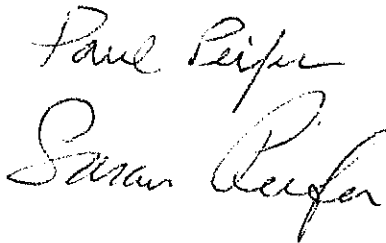 Paul Peifer
Susan Peifer